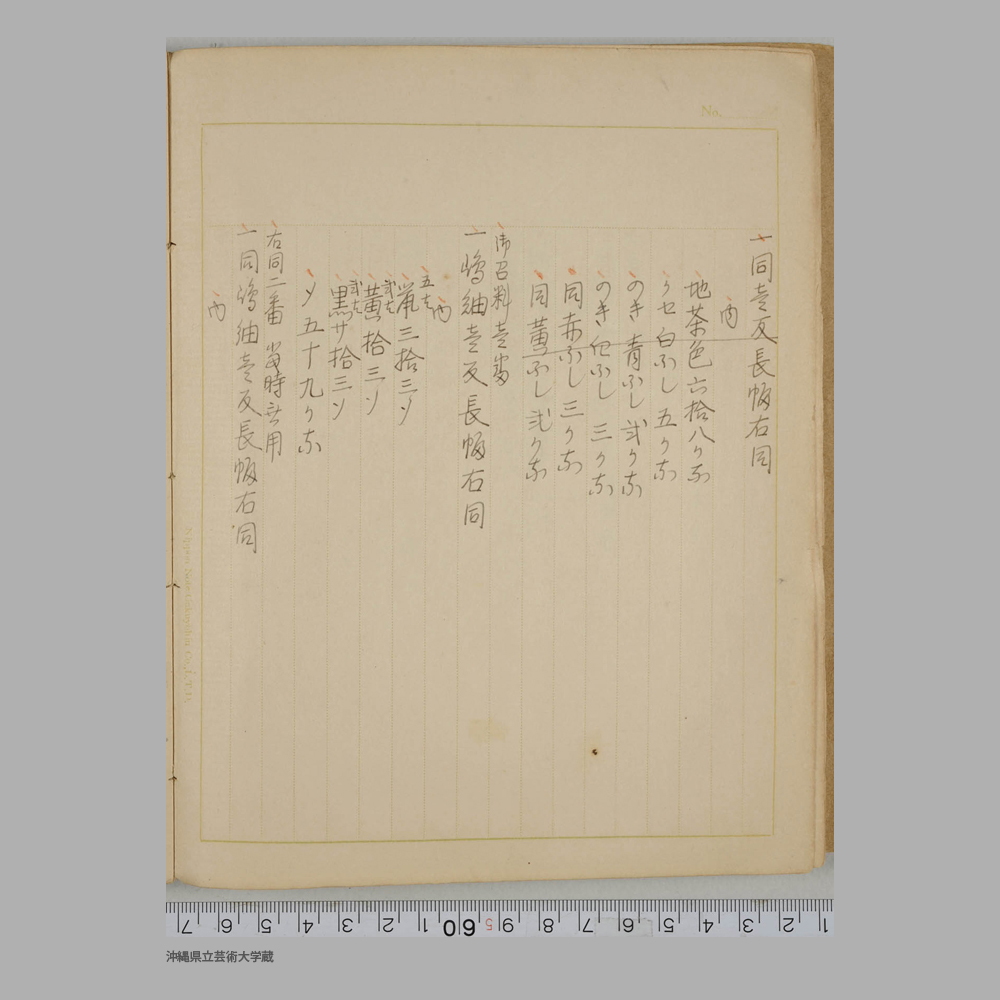 No.
一同壱反長幅右同
内
地茶色六拾八ヶな
ヶセ白ふし五ヶな
のき青ふし弐ヶな
のき 他ふし 三ヶな
同赤ふし三ヶな
同黄ふし弐ヶな
御召料壱番
一嶋紬壱反長幅右同
内
五七
嵐三拾三ソ
弐七
黄拾三ソ
弐七
黒サ拾三ソ
〆五十九ヶな
右同二番 當時公用
一同嶋紬壱反長幅右同
内
1 2 3 4 5 6 7 8 9 60 1 2 3 4 5 6 7
沖縄県立芸術大学蔵